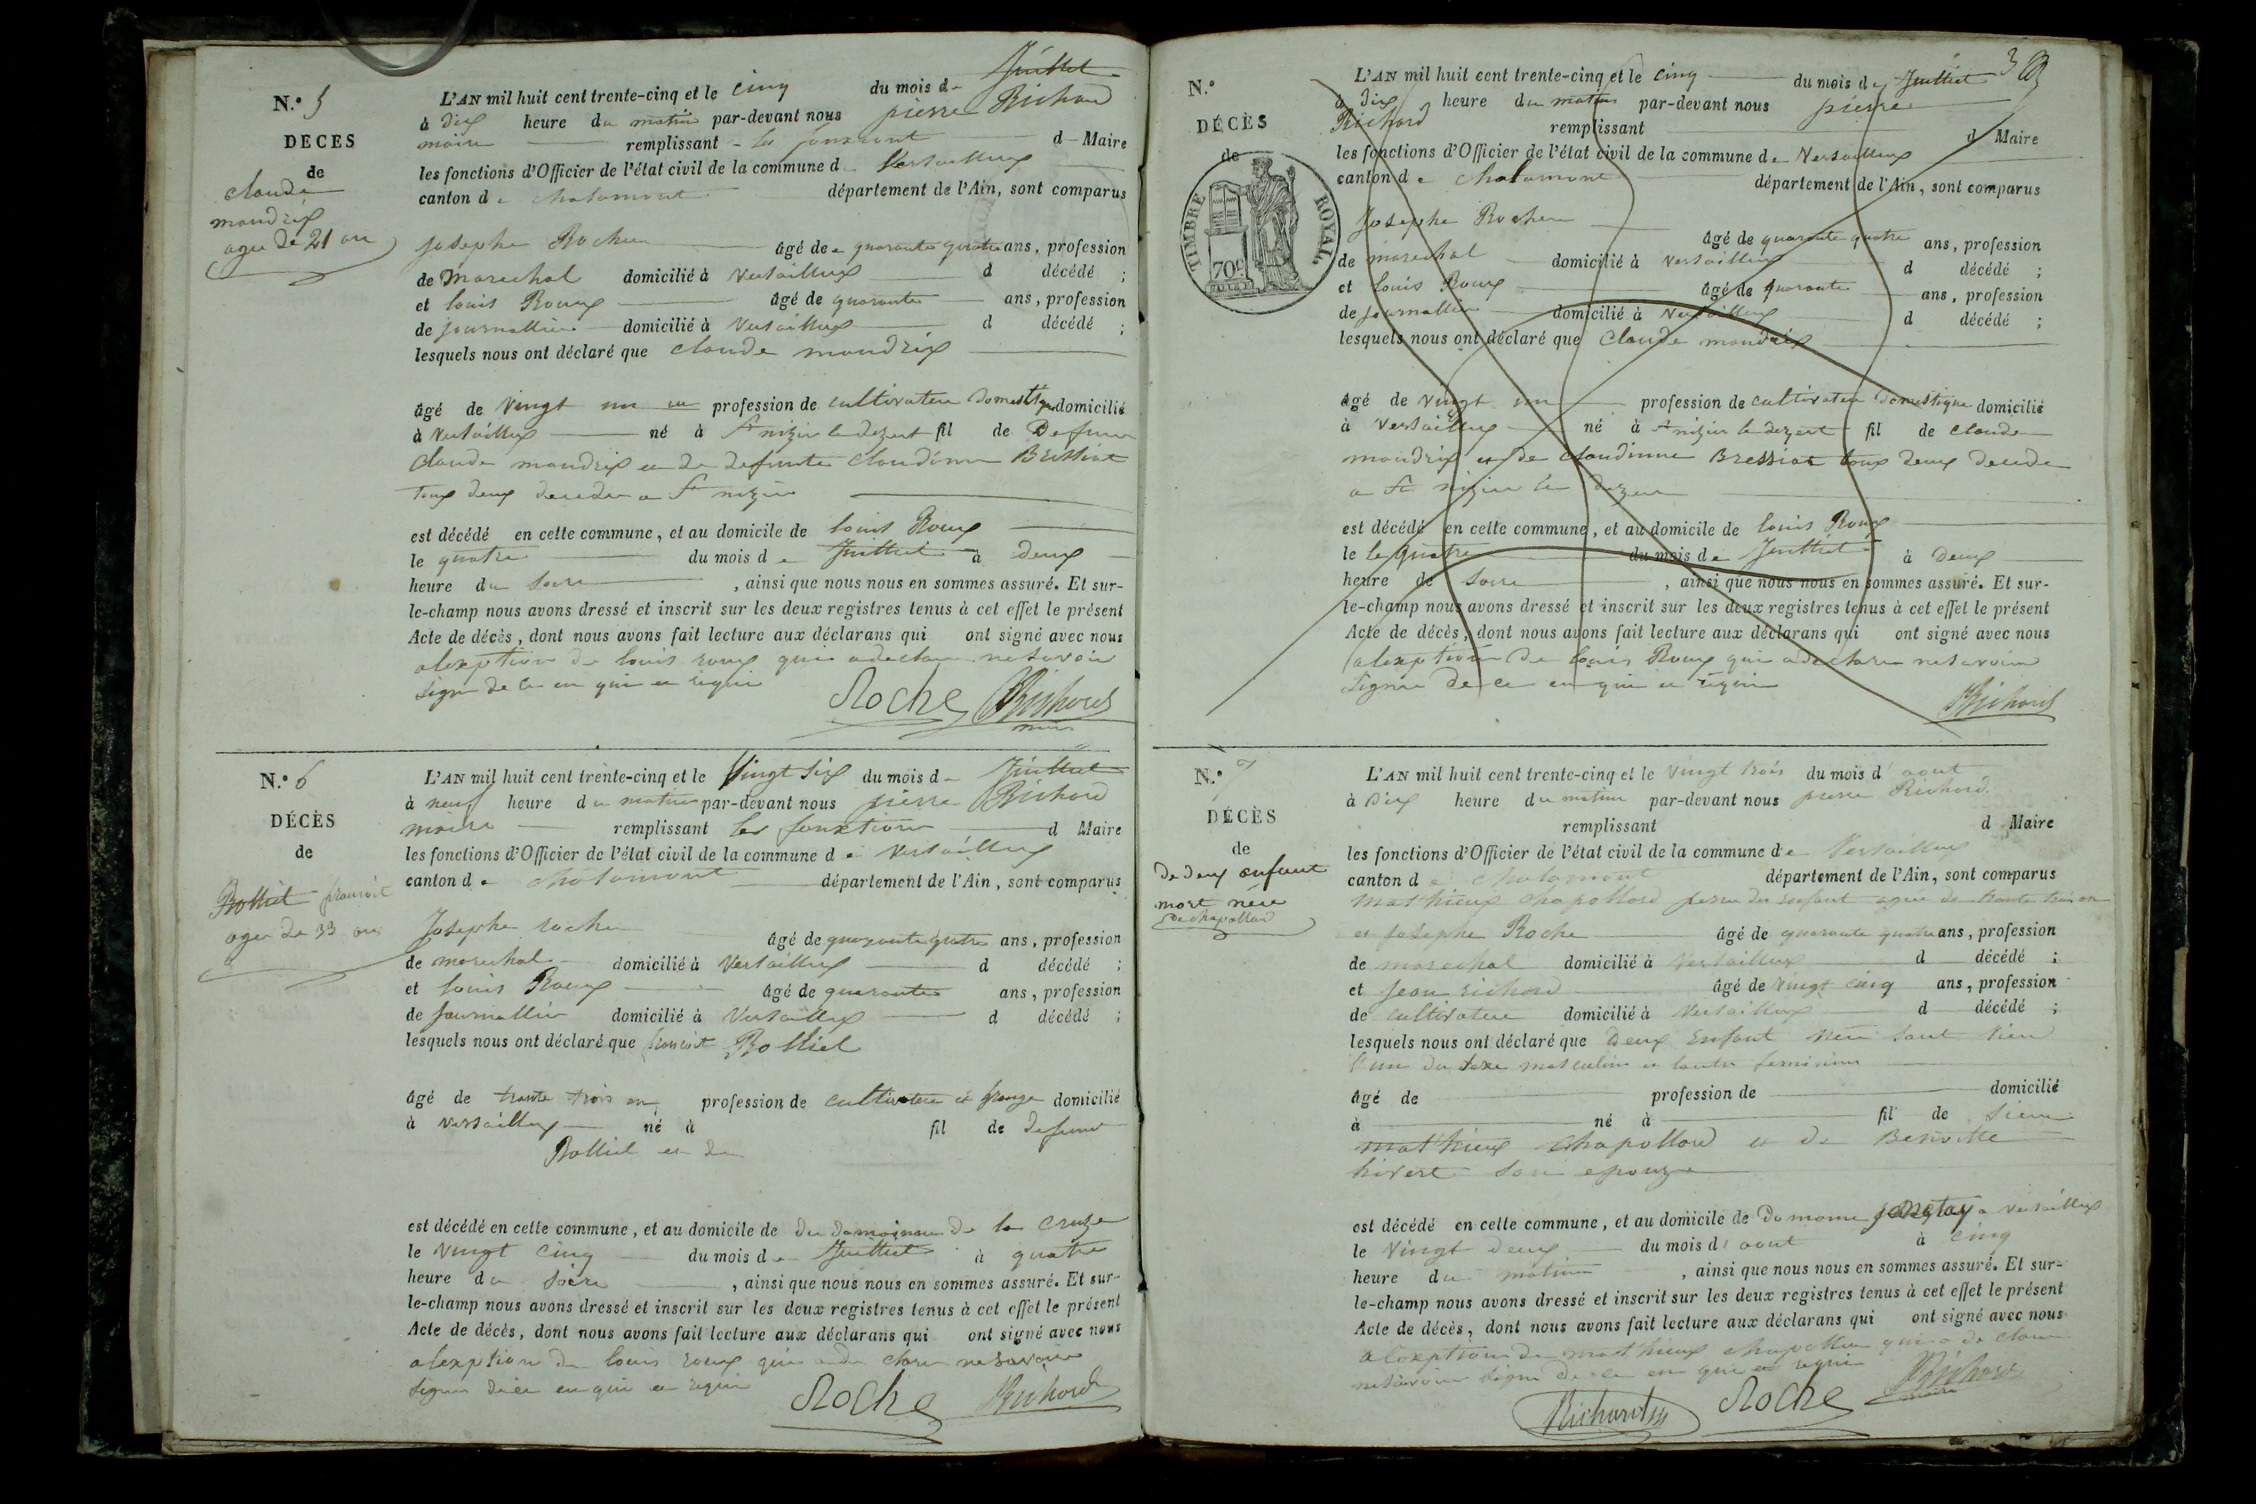 N.o 5
DECES
de
claude
mandrix
agee de 21 an
L'AN mil huit cent trente-cinq et le cinq du mois de Juillet
à dix heure du matin par-devant nous pierre Richard
maire remplissant les fonxiont d Maire
les fonctions d'Officier de l'état civil de la commune d Versailleux
canton de chalamont département de l'Ain, sont comparus
Josephe Rocher âgé de quarante quatre ans, profession
de marechal domicilié à Versailleux d décédé ;
et louis Roux âgé de quarante ans, profession
de journallier domicilié à Versailleux d décédé ;
lesquels nous ont déclaré que claude mandrix
âgé de vingt un an profession de cultivateur domestique domicilié
à Versailleux né à St nizier le dezert fil de Defunt
claude mandrix et de defunte claudinne Bressiat
tous deux decede a St nizier
est décédé en cette commune, et au domicile de louis Roux
le quatre du mois de Juillet à deux
heure du soire , ainsi que nous nous en sommes assuré. Et sur-
le-champ nous avons dressé et inscrit sur les deux registres tenus à cet effet le présent
Acte de décès, dont nous avons fait lecture aux déclarans qui ont signé avec nous
alexption de louis roux qui a declare ne savoir
signe de ce en qui et requi
Roche Richard
N.o 6
DÉCÈS
de
Bolliet francoit
agee de 33 ans
L'AN mil huit cent trente-cinq et le Vingt six du mois d Juillet
à neuf heure du matin par-devant nous pierre Richard
maire remplissant les fonxtions d Maire
les fonctions d'Officier de l'état civil de la commune de Versailleux
canton de chalamont département de l'Ain, sont comparus
Josephe roche âgé de quarante quatre ans, profession
de marechal domicilié à Versailleux d décédé ;
et louis Roux âgé de quarante ans, profession
de Journallier domicilié à Versailleux d décédé ;
lesquels nous ont déclaré que francoit Bolliet
âgé de trante trois an profession de cultivateur domicilié
à Versailleux né à fil de defunt
Bolliet et de
est décédé en cette commune, et au domicile de du domainne de la cruze
le Vingt cinq du mois de Juillet à quatre
heure du soire , ainsi que nous nous en sommes assuré. Et sur-
le-champ nous avons dressé et inscrit sur les deux registres tenus à cet effet le présent
Acte de décès, dont nous avons fait lecture aux déclarans qui ont signé avec nous
alexption de louis roux qui a de clare ne savoir
signer de ce en qui et requi
Roche Richard
N.o
DÉCÈS
de
TIMBRE ROYAL
70c
L'AN mil huit cent trente-cinq et le cinq du mois de Juilliet
à dix heure du matin par-devant nous pierre
Richard remplissant d Maire
les fonctions d'Officier de l'état civil de la commune de Versailleux
canton de chalamont département de l'Ain, sont comparus
Josephe Rocher âgé de quarante quatre ans, profession
de marechal domicilié à Versailleux d décédé ;
et louis Roux âgé de quarante ans, profession
de journallier domicilié à Versailleux d décédé ;
lesquels nous ont déclaré que claude mandrix
âgé de vingt un profession de cultivateur domestique domicilié
à Versailleux né à St nizier le dezert fil de claude
mandrix et de claudinne Bressiat tous deux decede
a St nizier le dezert
est décédé en cette commune, et au domicile de louis Roux
le le quatre du mois de Juilliet à deux
heure de soire , ainsi que nous nous en sommes assuré. Et sur-
le-champ nous avons dressé et inscrit sur les deux registres tenus à cet effet le présent
Acte de décès, dont nous avons fait lecture aux déclarans qui ont signé avec nous
alexption de louis Roux qui a declare ne savoir
signer de ce en qui et requi
Richard
N.o 7
DÉCÈS
de
de deux enfant
mort néee
de chapolland
L'AN mil huit cent trente-cinq et le vingt trois du mois d'aout
à Dix heure du matin par-devant nous pierre Richard
remplissant d Maire
les fonctions d'Officier de l'état civil de la commune de Versailleux
canton de chalamont département de l'Ain, sont comparus
mathieux chapolland perre des enfant agee de trante trois an
et josephe Roche âgé de quarante quatre ans, profession
de marechal domicilié à Versailleux d décédé ;
et Jean richard âgé de vingt cinq ans, profession
de cultivateur domicilié à Versailleux d décédé ;
lesquels nous ont déclaré que deux enfant neé sant vieu
l'une du sexe masculin et lautre feminim
âgé de profession de domicilié
à né à fil de sieur
mathieux chapolland et de Benoitte
hivert son epouze
est décédé en cette commune, et au domicile de a Versailleux
le vingt deux du mois d'aout à cinq
heure du matin , ainsi que nous nous en sommes assuré. Et sur-
le-champ nous avons dressé et inscrit sur les deux registres tenus à cet effet le présent
Acte de décès, dont nous avons fait lecture aux déclarans qui ont signé avec nous
alexption de mathieux chapollan qui a de clare
ne savoir signe de ce en qui et requi
Richard Roche Richard
maire